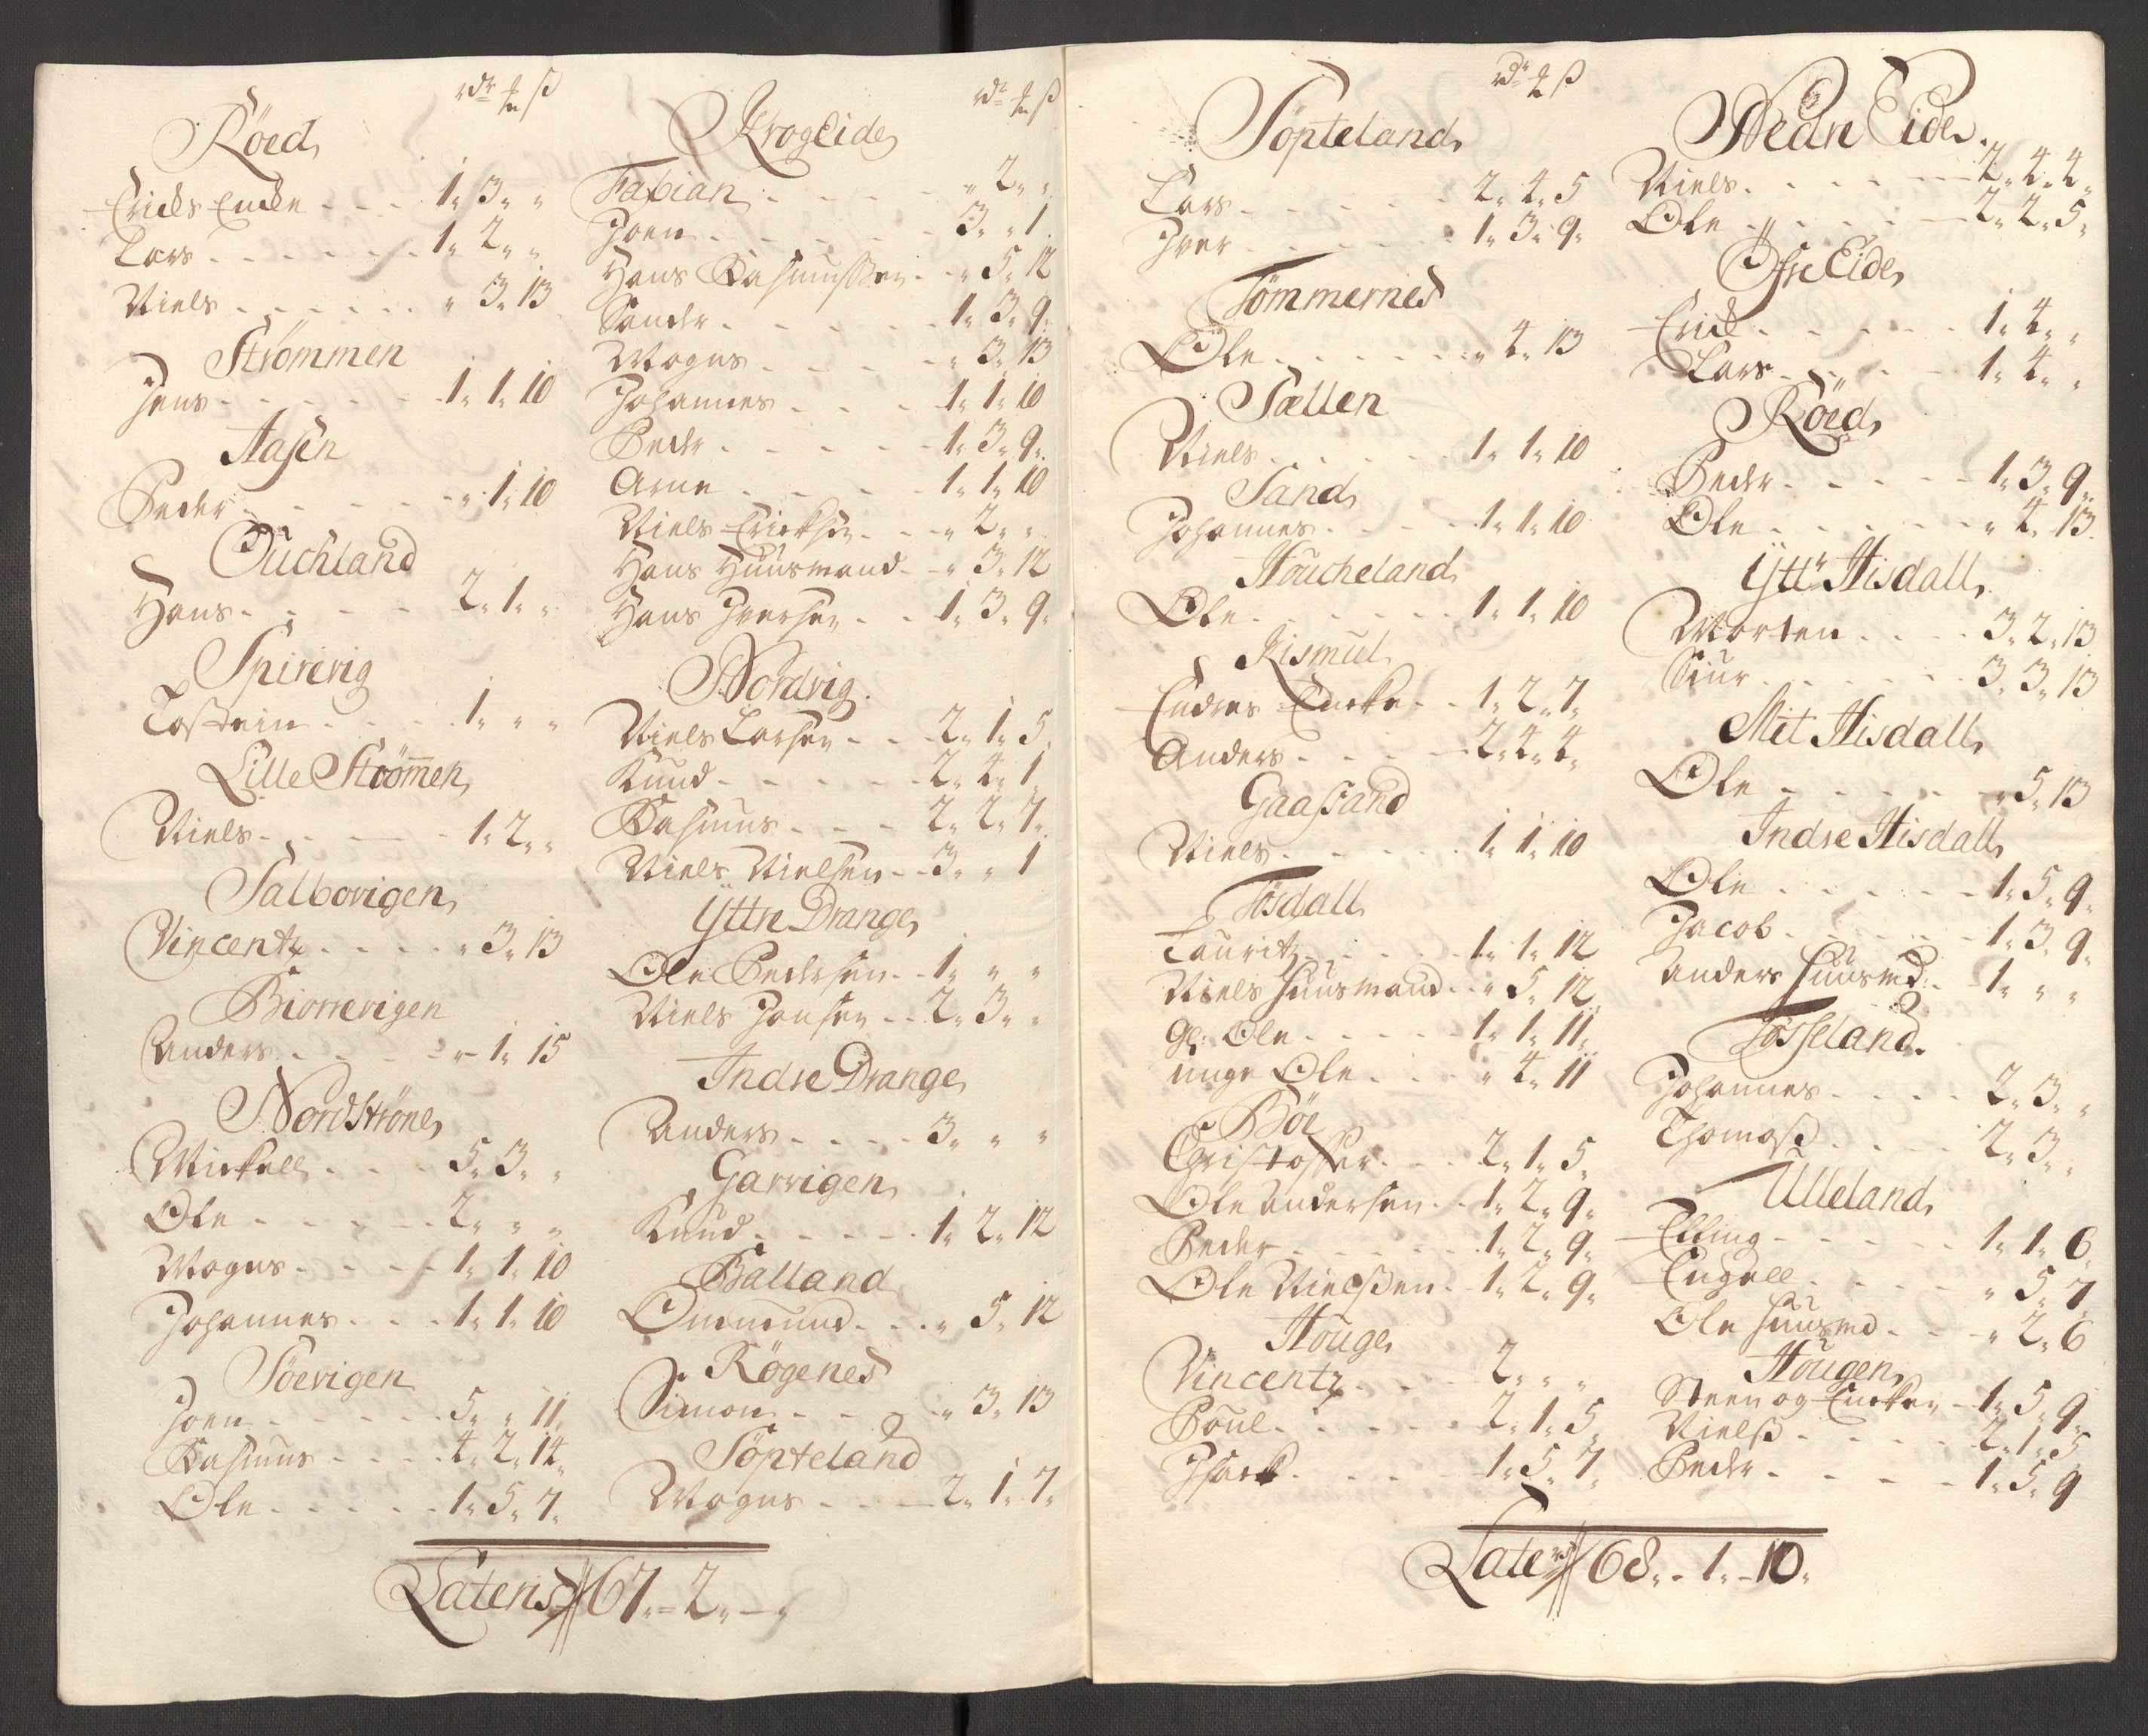 Röed
Ericks Encke - - - 1" 3" "
Lars - - - - - - 1" 2" "
Niels - - - - - - " 3" 13
Strömmen
Jens - - - - - - 1" 1" 10
Aasen
Peder - - - - - " 1" 10
Ouchland
Hans - - - - - 2" 1" "
Spirevig
Tostein - - - - 1" " "
Lille Ström̅en
Niels - - - - - 1" 2" "
Salbovigen
Vincentz - - - - " 3" 13
Biørrevigen
Anders - - - - " 1" 15
Nordströne
Mickell - - - 5" 3" "
Ole - - - - - 2" " "
Mogns - - - - 1" 1" 10
Johannes - - - 1" 1" 10
Söevigen
Joen - - - - - 5" " 11"
Rasmus - - - - 4" 2" 14"
Ole - - - - - 1" 5" 7"
KrogEide
Fabian - - - - " 2" "
Joen - - - - - 3" " 1
Hans Rasmussen - - " 5" 12
Sander - - - - - 1" 3" 9"
Mogns - - - - " 3" 13
Johannes - - - 1" 1" 10
Peder - - - - - 1" 3" 9"
Arne - - - - 1" 1" 10
Niels Ericksen - - " 2" "
Hans Huusmand - " 3" 12
Hans Iversen - - 1" 3" 9"
Nordvig
Niels Larsen - - 2" 1" 5
Knud - - - - - 2" 4" 1
Rasmus - - - 2" 2" 7"
Niels Nielsen - - 3" " 1
Yttre Drange
Ole Pedersen - - 1" " "
Niels Jonsen - - 2" 3" "
Indre Drange
Anders - - - - 3" " "
Garvigen
Knud - - - - - 1" 2" 12
Balland
Ommund - - - " 5" 12
Rögenes
Simon - - - - " 3" 13
Söpteland
Mogns - - - 2" 1" 7"
Lateris 67 " 2 " — "
Söpteland
Lars - - - - - - 2" 4" 5
Iver - - - - - - 1" 3" 9"
Tömmernes
Ole - - - - - - " 4" 13
Sællen
Niels - - - - - 1" 1" 10
Sand
Johannes - - - - 1" 1" 10
Houcheland
Ole - - - - - - 1" 1" 10
Kismul
Endres Encke - - 1" 2" 7"
Anders - - - - 2" 4" 4"
Gaassand
Niels - - - - - 1" 1" 10
Tösdall
Lauritz - - - - 1" 1" 12
Niels Huusmand - " 5" 12
Gl: Ole - - - - - 1" 1" 11"
unge Ole - - - " 4" 11
Böe
Christoffer - - - 2" 1" 5"
Ole Andersen - - 1" 2" 9"
Peder - - - - - 1" 2" 9"
Ole Nielssen - 1" 2" 9"
Houge
Vincentz - - - 2" " "
Poul - - - - - 2" 1" 5"
Isack - - - - 1" 5" 7"
Nedre Eide
Niels - - - - - 2" 4" 4"
Ole - - - - - 2" 2" 5"
Öfre Eide
Erick - - - - - 1" 4" "
Lars - - - - 1" 4" "
Röed
Peder - - - - - 1" 3" 9"
Ole - - - - - - " 4" 13
Yttr Hisdall
Morten - - - - 3" 2" 13
Siur - - - - - - 3" 3" 13
Mit Hisdall
Ole - - - - - " 5" 13
Indre Hisdall
Ole - - - - - 1" 5" 9"
Jacob - - - - - 1" 3" 9"
Anders Huusmd: - 1" " "
Tösseland
Johannes - - - - 2" 3" "
Thomass - - - - 2" 3" "
Ulleland
Elling - - - - - 1" 1" 6"
Engell - - - - " 5" 7"
Ole Huusmd - - - " 2" 6
Hougen
Steen og Encken - 1" 5" 9"
Nielss - - - - 2" 1" 5
Peder - - - - 1" 5" 9
Later 68 " 1 " 10 "